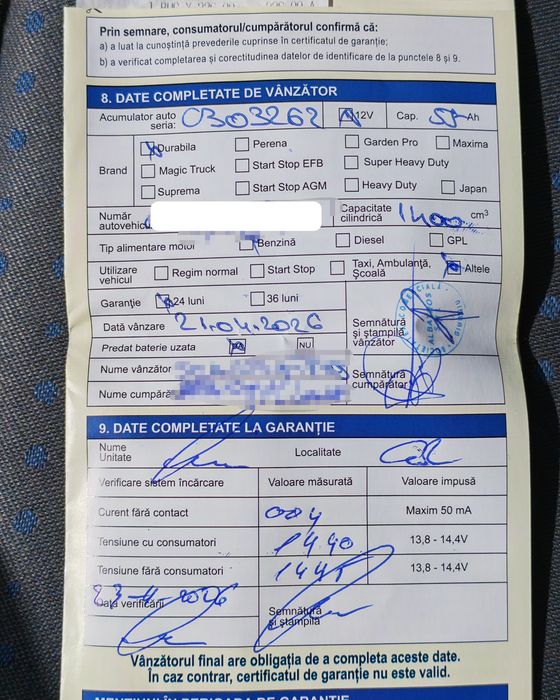 Prin semnare, consumatorul/cumpărătorul confirmă că:
a) a luat la cunoștință prevederile cuprinse în certificatul de garanție;
b) a verificat completarea și corectitudinea datelor de identificare de la punctele 8 și 9.
8. DATE COMPLETATE DE VÂNZĂTOR
Acumulator auto serie: 0303262 12V Cap. 55 Ah
Brand
Durabila Perena Garden Pro Maxima
Magic Truck Start Stop EFB Super Heavy Duty
Suprema Start Stop AGM Heavy Duty Japan
Număr Capacitate cilindrică 1400 cm³
Tip alimentare motor Benzină Diesel GPL
Utilizare vehicul Regim normal Start Stop Taxi, Ambulanță, Școală Altele
Garanție 24 luni 36 luni
Data vânzare 21.04.2026
Semnătură și ștampilă vânzător
Predat baterie uzata DA NU
Nume vânzător
Semnătură cumpărător
Nume
9. DATE COMPLETATE LA GARANȚIE
Nume Unitate Localitate
Verificare sistem încărcare Valoare măsurată Valoare impusă
Curent fără contact 004 Maxim 50 mA
Tensiune cu consumatori 14.40 13,8 - 14,4V
Tensiune fără consumatori 13,8 - 14,4V
Data verificării
Semnătură și ștampilă
Vânzătorul final are obligația de a completa aceste date.
În caz contrar, certificatul de garanție nu este valid.